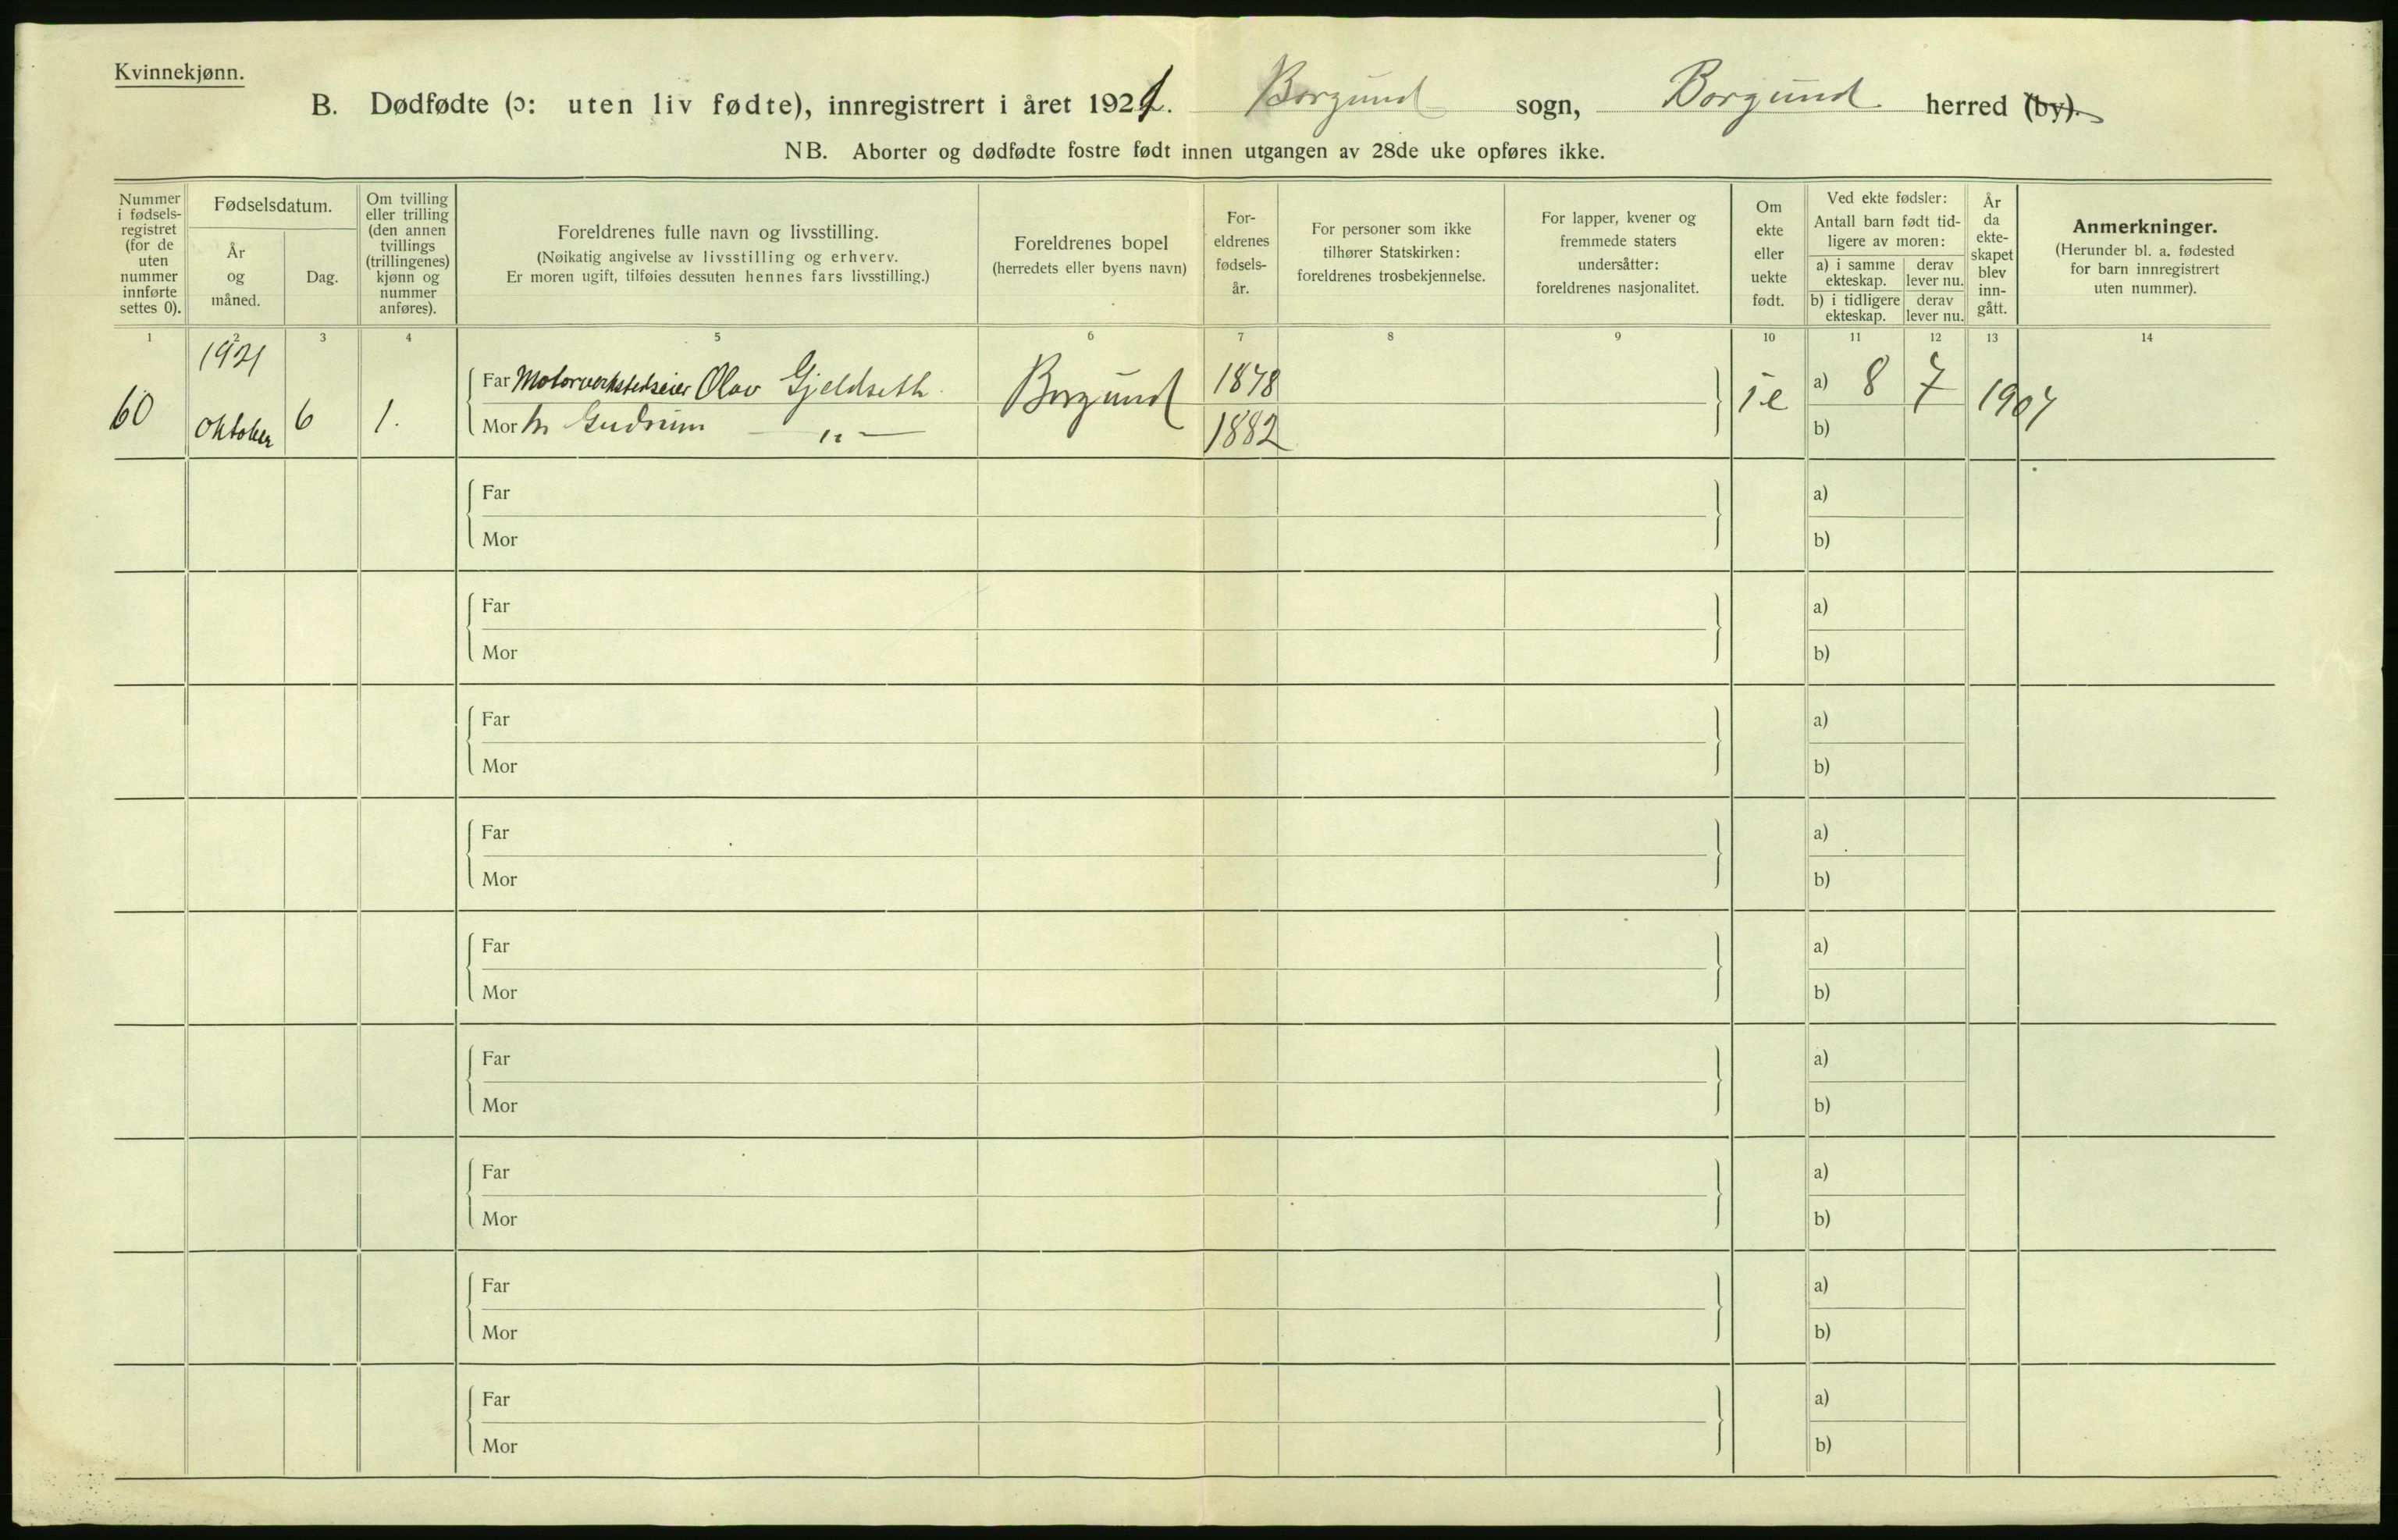 Kvinnekjønn.
B. Dødfødte (ɔ: uten liv fødte), innregistrert i året 1921. Borgund sogn, Borgund herred (by).
NB. Aborter og dødfødte fostre født innen utgangen av 28de uke opføres ikke.
Nummer i fødsels-registret (for de uten nummer innførte settes 0).
Fødselsdatum.
År og måned.
Dag.
Om tvilling eller trilling (den annen tvillings (trillingenes) kjønn og nummer anføres).
Foreldrenes fulle navn og livsstilling.
(Nøikatig angivelse av livsstilling og erhverv.
Er moren ugift, tilføies dessuten hennes fars livsstilling.)
Foreldrenes bopel
(herredets eller byens navn)
For-eldrenes fødsels-år.
For personer som ikke tilhører Statskirken: foreldrenes trosbekjennelse.
For lapper, kvener og fremmede staters undersåtter: foreldrenes nasjonalitet.
Om ekte eller uekte født.
Ved ekte fødsler:
Antall barn født tid-ligere av moren:
a) i samme ekteskap.
derav lever nu.
b) i tidligere ekteskap.
derav lever nu.
År da ekte-skapet blev inn-gått.
Anmerkninger.
(Herunder bl. a. fødested for barn innregistrert uten nummer).
1 2 3 4 5 6 7 8 9 10 11 12 13 14
1921
Far Motorverkstedseier Olav Gjeldseth 1878 a) 8 7
60 Oktober 6 1. Borgund e 1907
Mor Gudrun —„— 1882 b)
Far a)
Mor b)
Far a)
Mor b)
Far a)
Mor b)
Far a)
Mor b)
Far a)
Mor b)
Far a)
Mor b)
Far a)
Mor b)
Far a)
Mor b)
Far a)
Mor b)